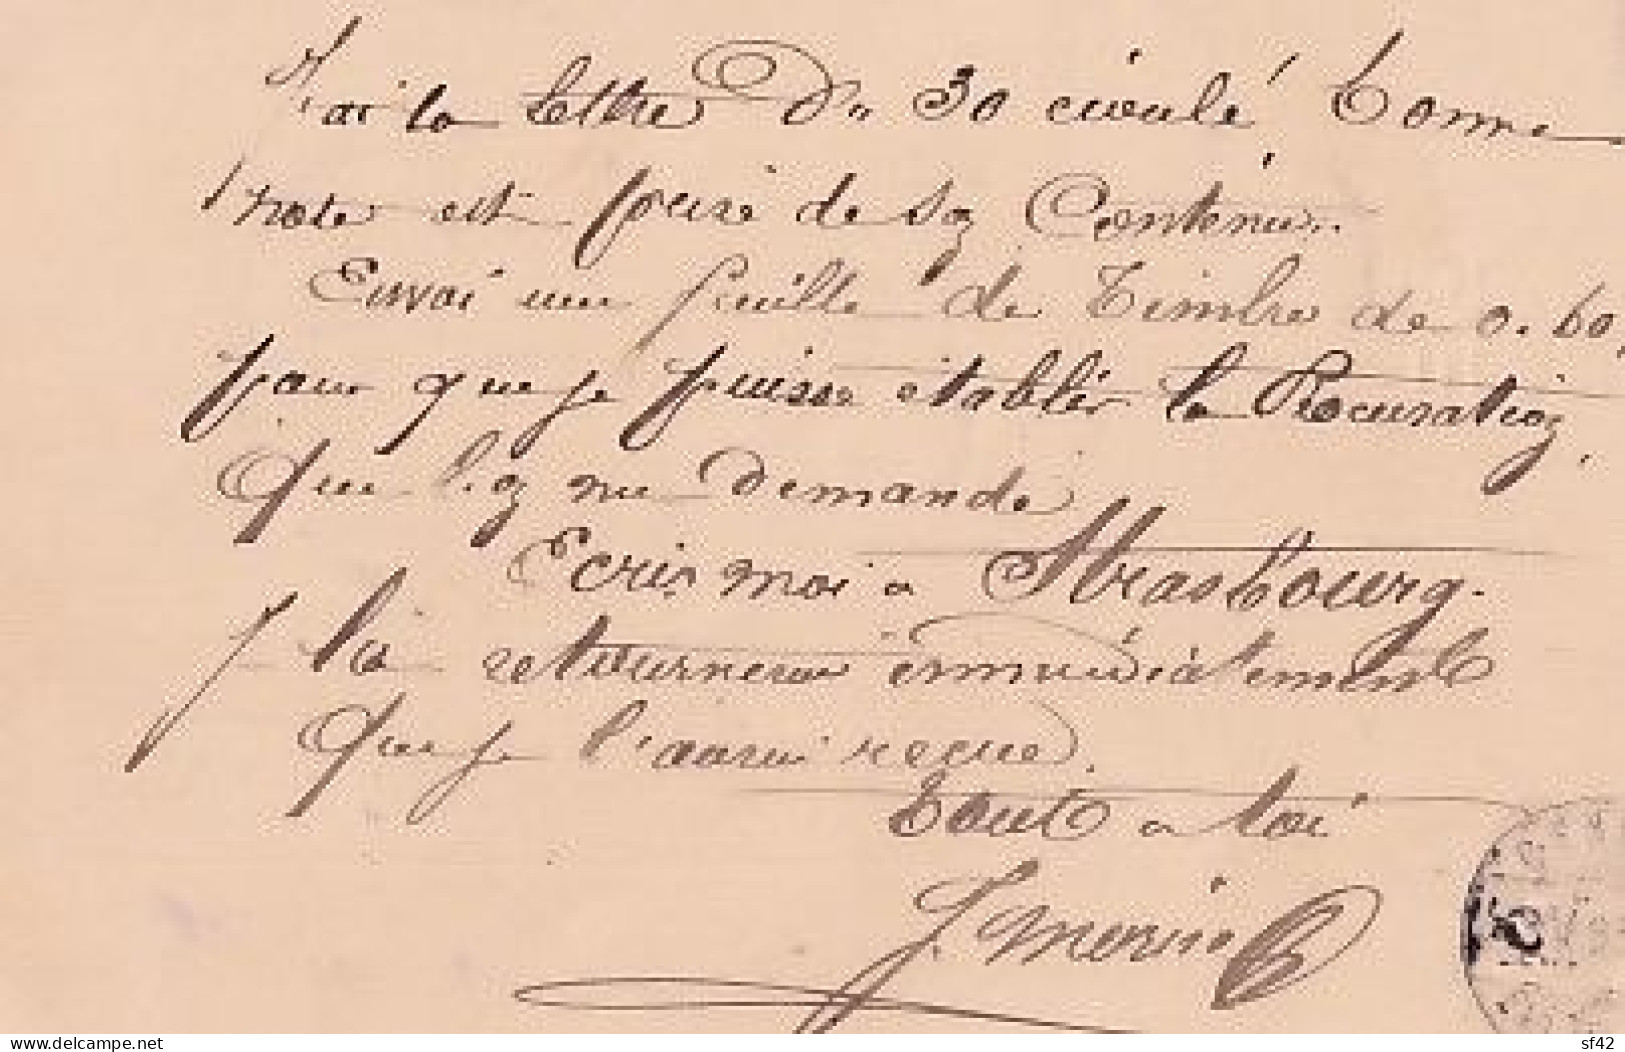 J'ai ta lettre du 30 écoulé, bonne
note est prise de son Contenu.
Envoi une feuille de Timbre de 0.60,
pour que je puisse établir la Procuration,
Que l'on me demande
Ecris moi a Strasbourg.
Je la retournerai immédiatement
Que je l'aurai recue.
Tout a toi
J. Morin
www.delcampe.net
sf42